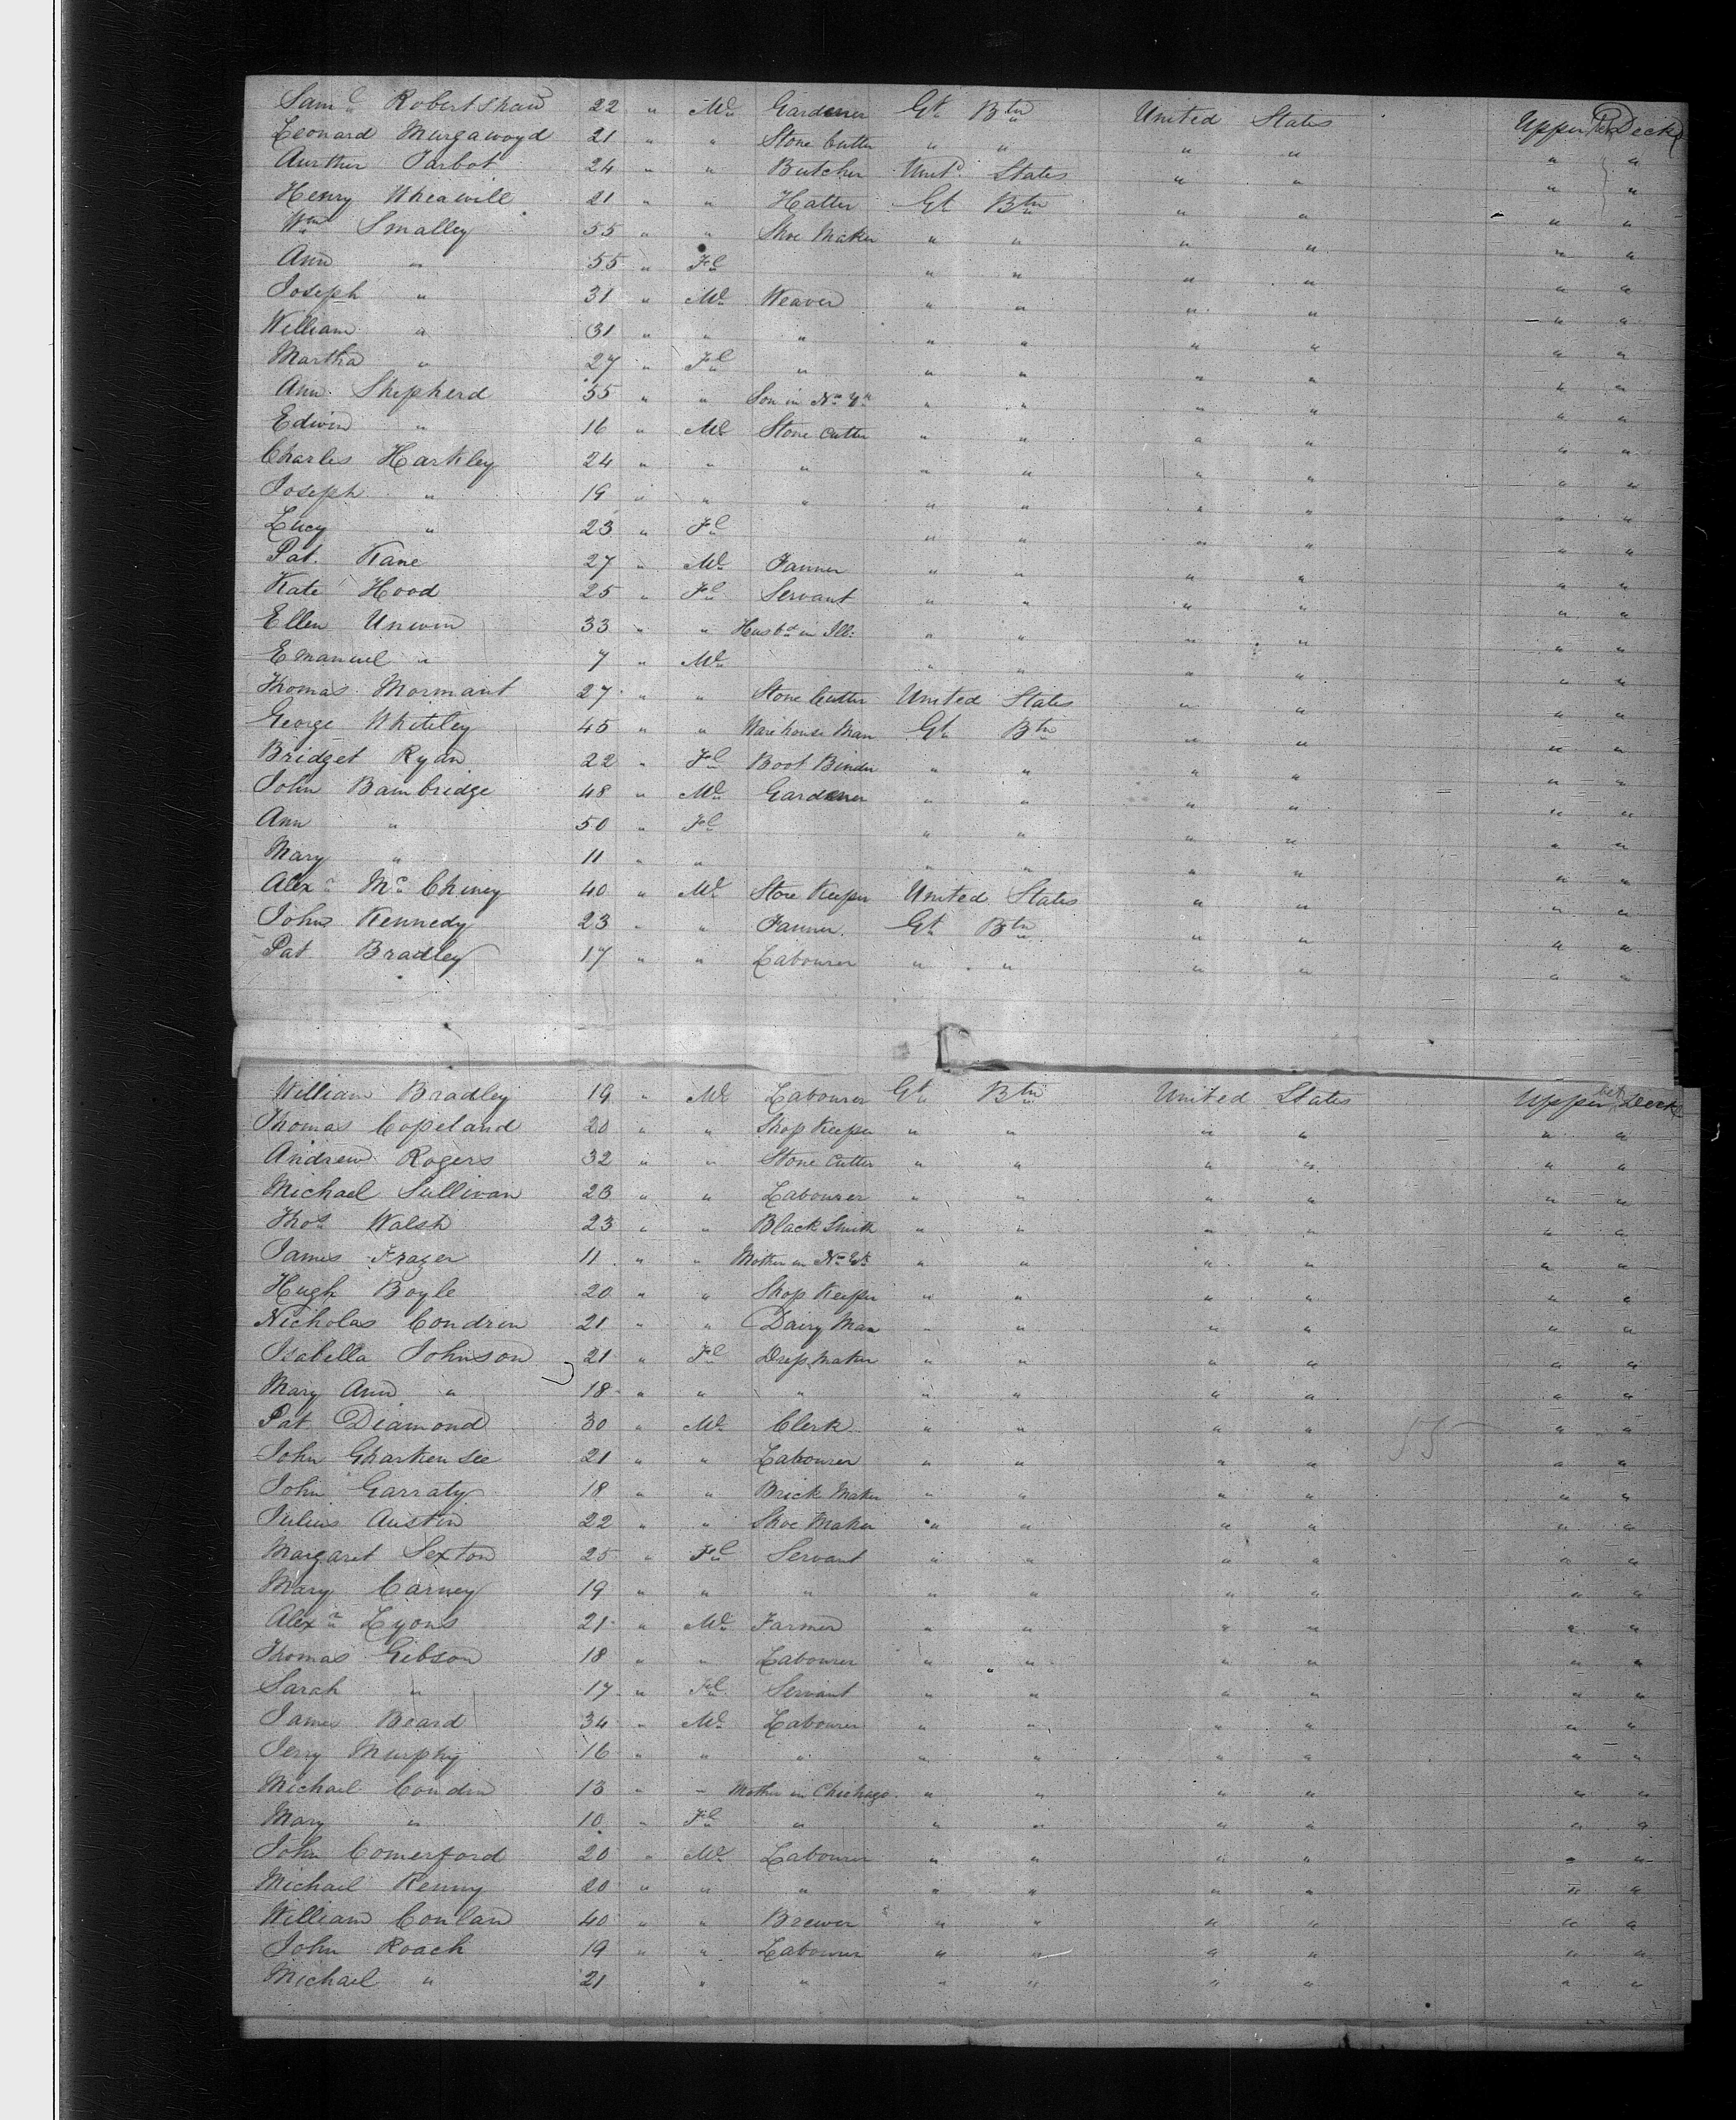 Saml Robertshaw 22 " Ml Gardener Gt Btn United States Upper Bet Deck
Leonard Murgawoyd 21 " " Stone Cutter " " " " " "
Aurthur Tarbot 24 " " Butcher Unitd States " " " "
Henry Wheawill 21 " " Hatter Gt Btn " " " "
Wm Smalley 55 " " Shoe Maker " " " " " "
Ann " 55 " Fl " " " " " "
Joseph " 31 " Ml Weaver " " " " " "
William " 31 " " " " " " " " "
Martha " 27 " Fl " " " " " " "
Ann Shepherd 55 " " Son in N. Yk " " " " " "
Edwin " 16 " Ml Stone Cutter " " " " " "
Charles Hartley 24 " " " " " " " " "
Joseph " 19 " " " " " " " " "
Lucy " 23 " Fl " " " " " "
Pat. Kane 27 " Ml Farmer " " " " " "
Kate Hood 25 " Fl Servant " " " " " "
Ellen Unwin 33 " " Husbd in Ill: " " " " " "
Emanuel " 7 " Ml " " " " " "
Thomas Mormant 27 " " Stone Cutter United States " " " "
George Whiteley 45 " " Ware house Man Gt Btn " " " "
Bridget Ryan 22 " Fl Boot Binder " " " " " "
John Bambridge 48 " Ml Gardener " " " " " "
Ann " 50 " Fl " " " " " "
Mary " 11 " " " " " " " "
Alexr Mc Chiney 40 " Ml Store Keeper United States " " " "
John Kennedy 23 " " Farmer Gt Btn " " " "
Pat Bradley 17 " " Labourer " " " " " "
William Bradley 19 " Ml Labourer Gt Btn United States Upper Bet Deck
Thomas Copeland 20 " " Shop Keeper " " " " " "
Andrew Rogers 32 " " Stone Cutter " " " " " "
Michael Sullivan 23 " " Labourer " " " " " "
Thos Walsh 23 " " Black Smith " " " " " "
James Frazer 11 " " Mother in N. Yk " " " " " "
Hugh Boyle 20 " " Shop Keeper " " " " " "
Nicholas Condrin 21 " " Dairy Man " " " " " "
Isabella Johnson 21 " Fl Dress Maker " " " " " "
Mary Ann " 18 " " " " " " " " "
Pat Diamond 30 " Ml Clerk " " " " 55 " "
John Gharkensee 21 " " Labourer " " " " " "
John Garraty 18 " " Brick Maker " " " " " "
Julius Austin 22 " " Shoe Maker " " " " " "
Margaret Sexton 25 " Fl Servant " " " " " "
Mary Carney 19 " " " " " " " " "
Alexr Lyons 21 " Ml Farmer " " " " " "
Thomas Gibson 18 " " Labourer " " " " " "
Sarah " 17 " Fl Servant " " " " " "
James Beard 34 " Ml Labourer " " " " " "
Jerry Murphy 16 " " " " " " " " "
Michael Condin 13 " " Mother in Chichago " " " " " "
Mary " 10 " Fl " " " " " " "
John Comerford 20 " Ml Labourer " " " " " "
Michael Kenny 20 " " " " " " " " "
William Conlan 40 " " Brewer " " " " " "
John Roach 19 " " Labourer " " " " " "
Michael " 21 " " " " " " " "